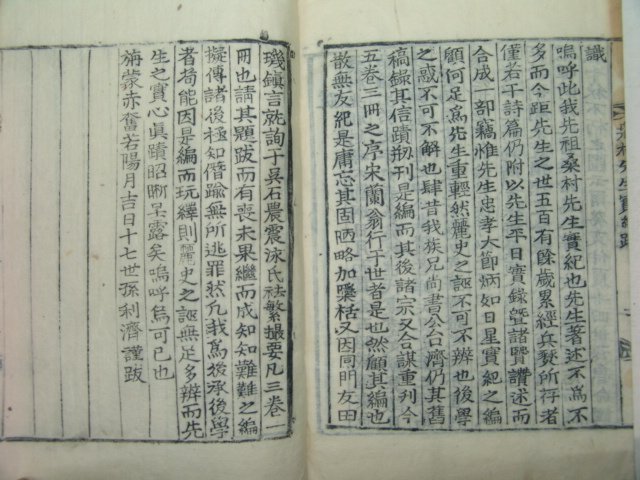 識
嗚呼此我先祖桑村先生實紀也先生著述不爲不
多而今距先生之世五百有餘歲累經兵燹所存者
僅若干詩篇仍附以先生平日實錄曁諸賢讚述而
合成一部竊惟先生忠孝大節炳如日星實紀之編
顧何足爲先生重輕然麗史之誣不可不辨也後學
之惑不可不解也肆昔我族兄尚書公台濟仍其舊
稿錄其信蹟刱刊是編而其後諸宗又合謀重刊今
五卷三冊之序宋蘭翁行于世者是也然顧其編也
散無友紀是庸忘其固陋略加櫽栝又因同門友田
璣鎭言就詢于吳石農震泳氏祛繁撮要凡三卷一
冊也請其題跋而有喪未果繼而成知知難難之編
擬傳諸後極知僭踰無所逃罪然凡我爲後承後學
者苟能因是編而玩繹則麗史之誣無足多辨而先
生之實心眞蹟昭晣呈露矣嗚呼烏可已也
旃蒙赤奮若陽月吉日十七世孫利濟謹跋
桑村先生實紀跋